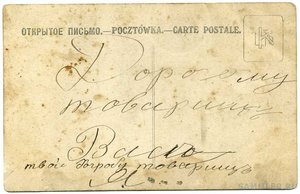 ОТКРЫТОЕ ПИСЬМО.—POCZTÓWKA.—CARTE POSTALE.
Дорогому
товарищу
Васе
твой товарищъ